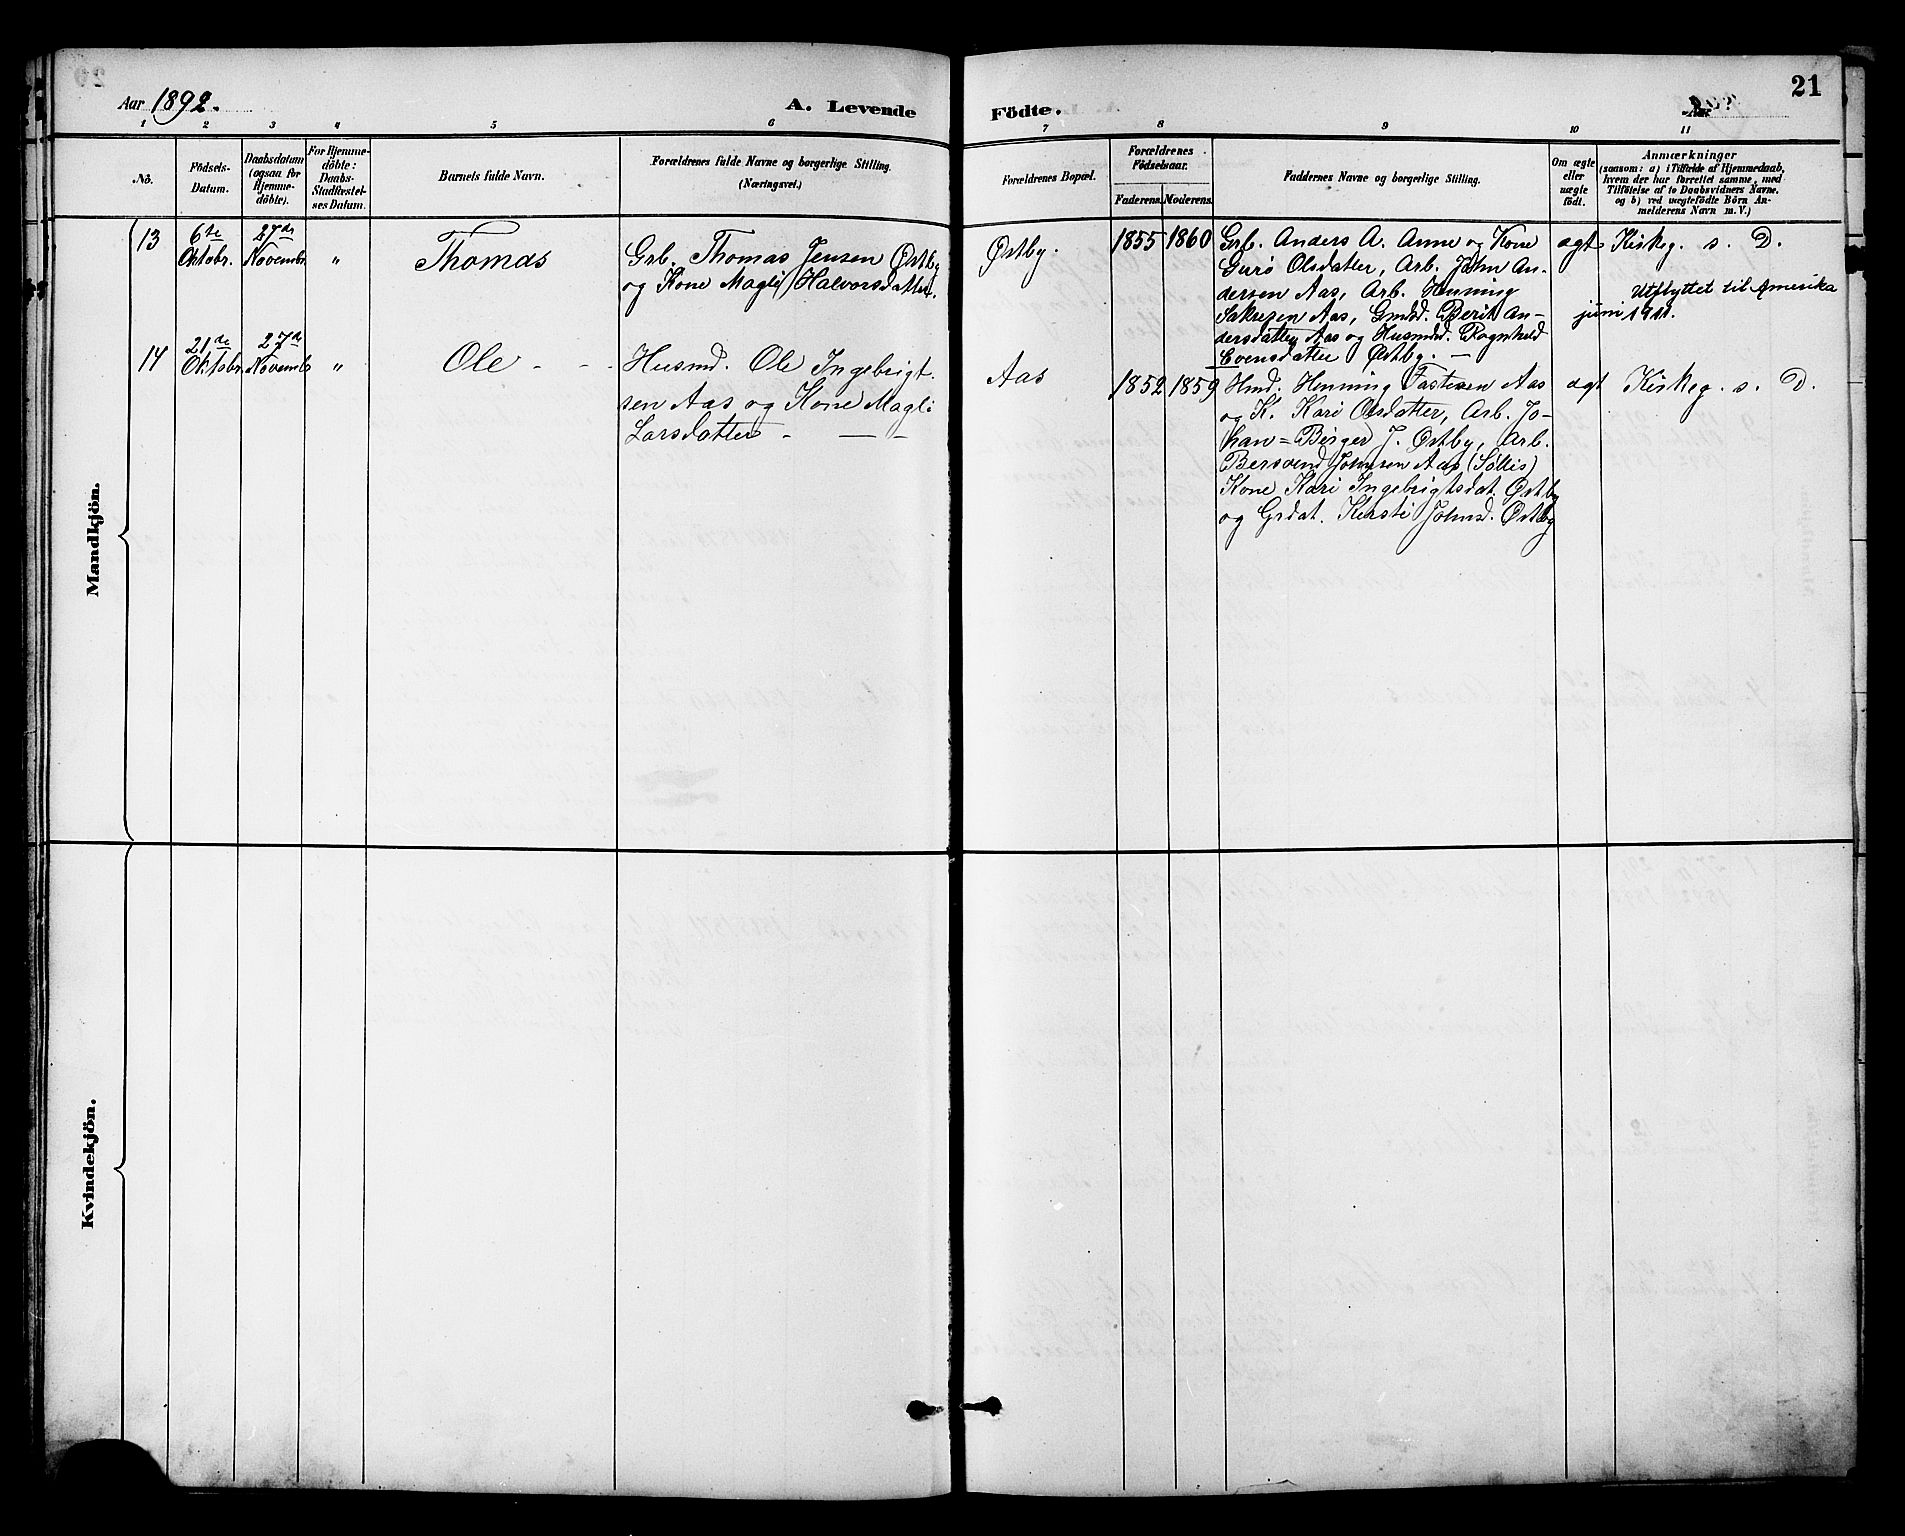 21
Aar 1892.
A. Levende Födte.
Aar
1 2 3 4 5 6 7 8 9 10 11
No.
Födsels-
Datum.
Daabsdatum
(ogsaa for
Hjemme-
döbte).
For Hjemme-
döbte:
Daabs-
Stadfæstel-
ses Datum.
Barnets fulde Navn.
Forældrenes fulde Navne og borgerlige Stilling.
(Næringsvei.)
Forældrenes Bopæl.
Forældrenes
Födselsaar.
Faderens. Moderens.
Faddernes Navne og borgerlige Stilling.
Om ægte
eller
uægte
födt.
Anmærkninger
(saasom: a) i Tilfælde af Hjemmedaab,
hvem der har forrettet samme, med
Tilföielse af to Daabsvidners Navne.
og b) ved uægtefödte Börn An-
melderens Navn m. V.)
Mandkjön.
13
6te
Oktobr.
27de
Novembr.
"
Thomas
Grb. Thomas Jensen Østby
og Kone Magli Halvorsdatter.
Østby.
1855 1860
Grb. Anders A. Aune og Kone
Gurö Olsdatter, Arb. John An-
dersen Aas, Arb. Henning
Sakrizen Aas, Gmbd. Berit An-
dersdatter Aas og Husmd. Ragnhild
Evensdatter Østby. —
ægte
Kirkeg. s. D.
Utflyttet til Amerika
juni 1911.
14
21de
Oktobr.
27de
Novembr
"
Ole - - -
Husmd. Ole Ingebrigt-
sen Aas og Kone Magli
Larsdatter - — -
Aas
1852 1859
Hmd. Henning Fastesen Aas
og K. Kari Olsdatter, Arb. Jo-
han=Birger J. Østby, Arb.
Bersvend Johnsen Aas (Söllis)
Kone Kari Ingebrigtsdat. Østby
og Grdat. Kersti Johnsd. Østby
ægt
Kirkeg. s. D.
Kvindekjön.